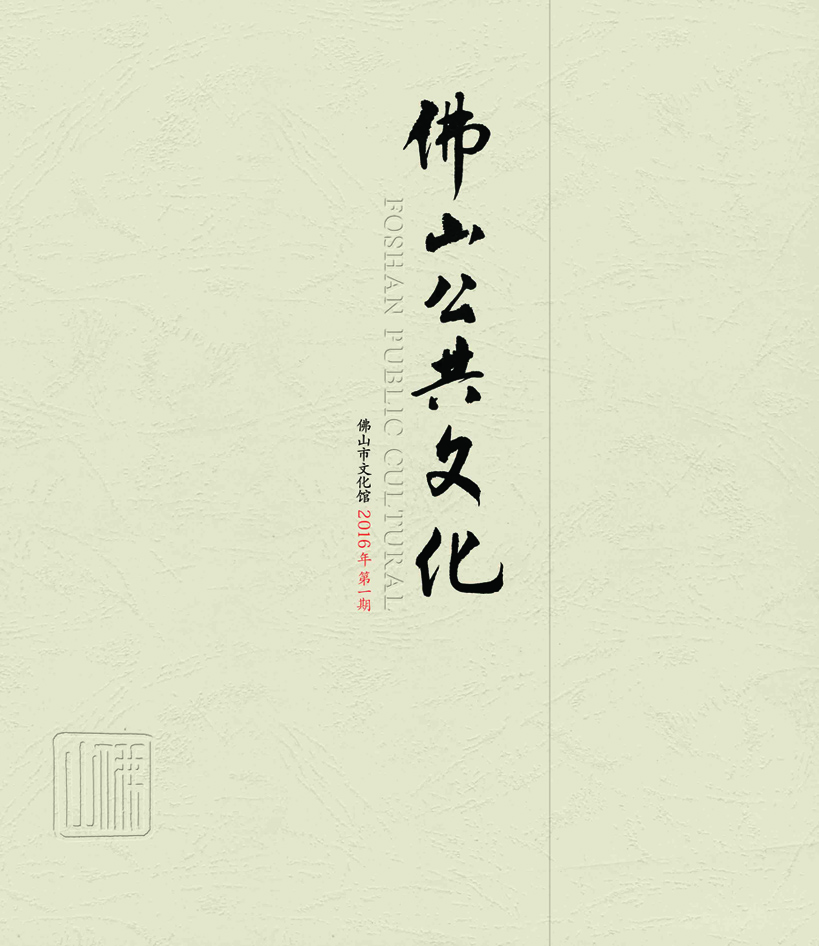 佛山公共文化
FOSHAN PUBLIC CULTURAL
佛山市文化馆 2016年第一期
佛山